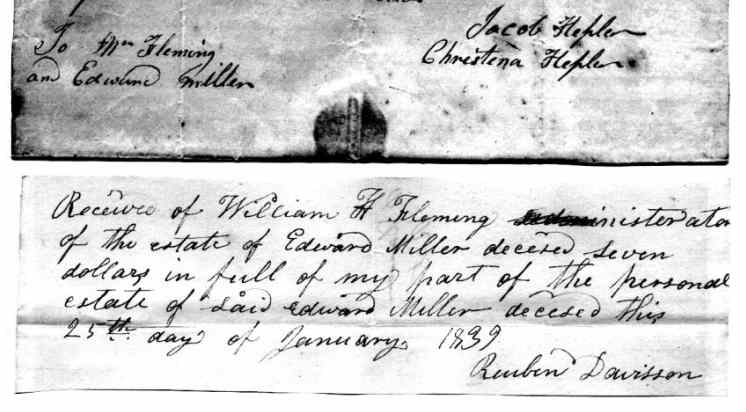 Jacob Hepler
Christena Hepler
To Wm Fleming
and Edward Miller
Received of William H Fleming administerator
of the estate of Edward Miller decesed seven
dollars in full of my part of the personal
estate of said edward Miller decesed this
25th day of January 1839
Reuben Davisson